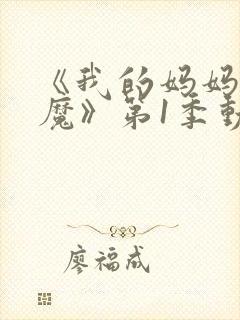 《我的妈妈
魔》第1季動
廖福成